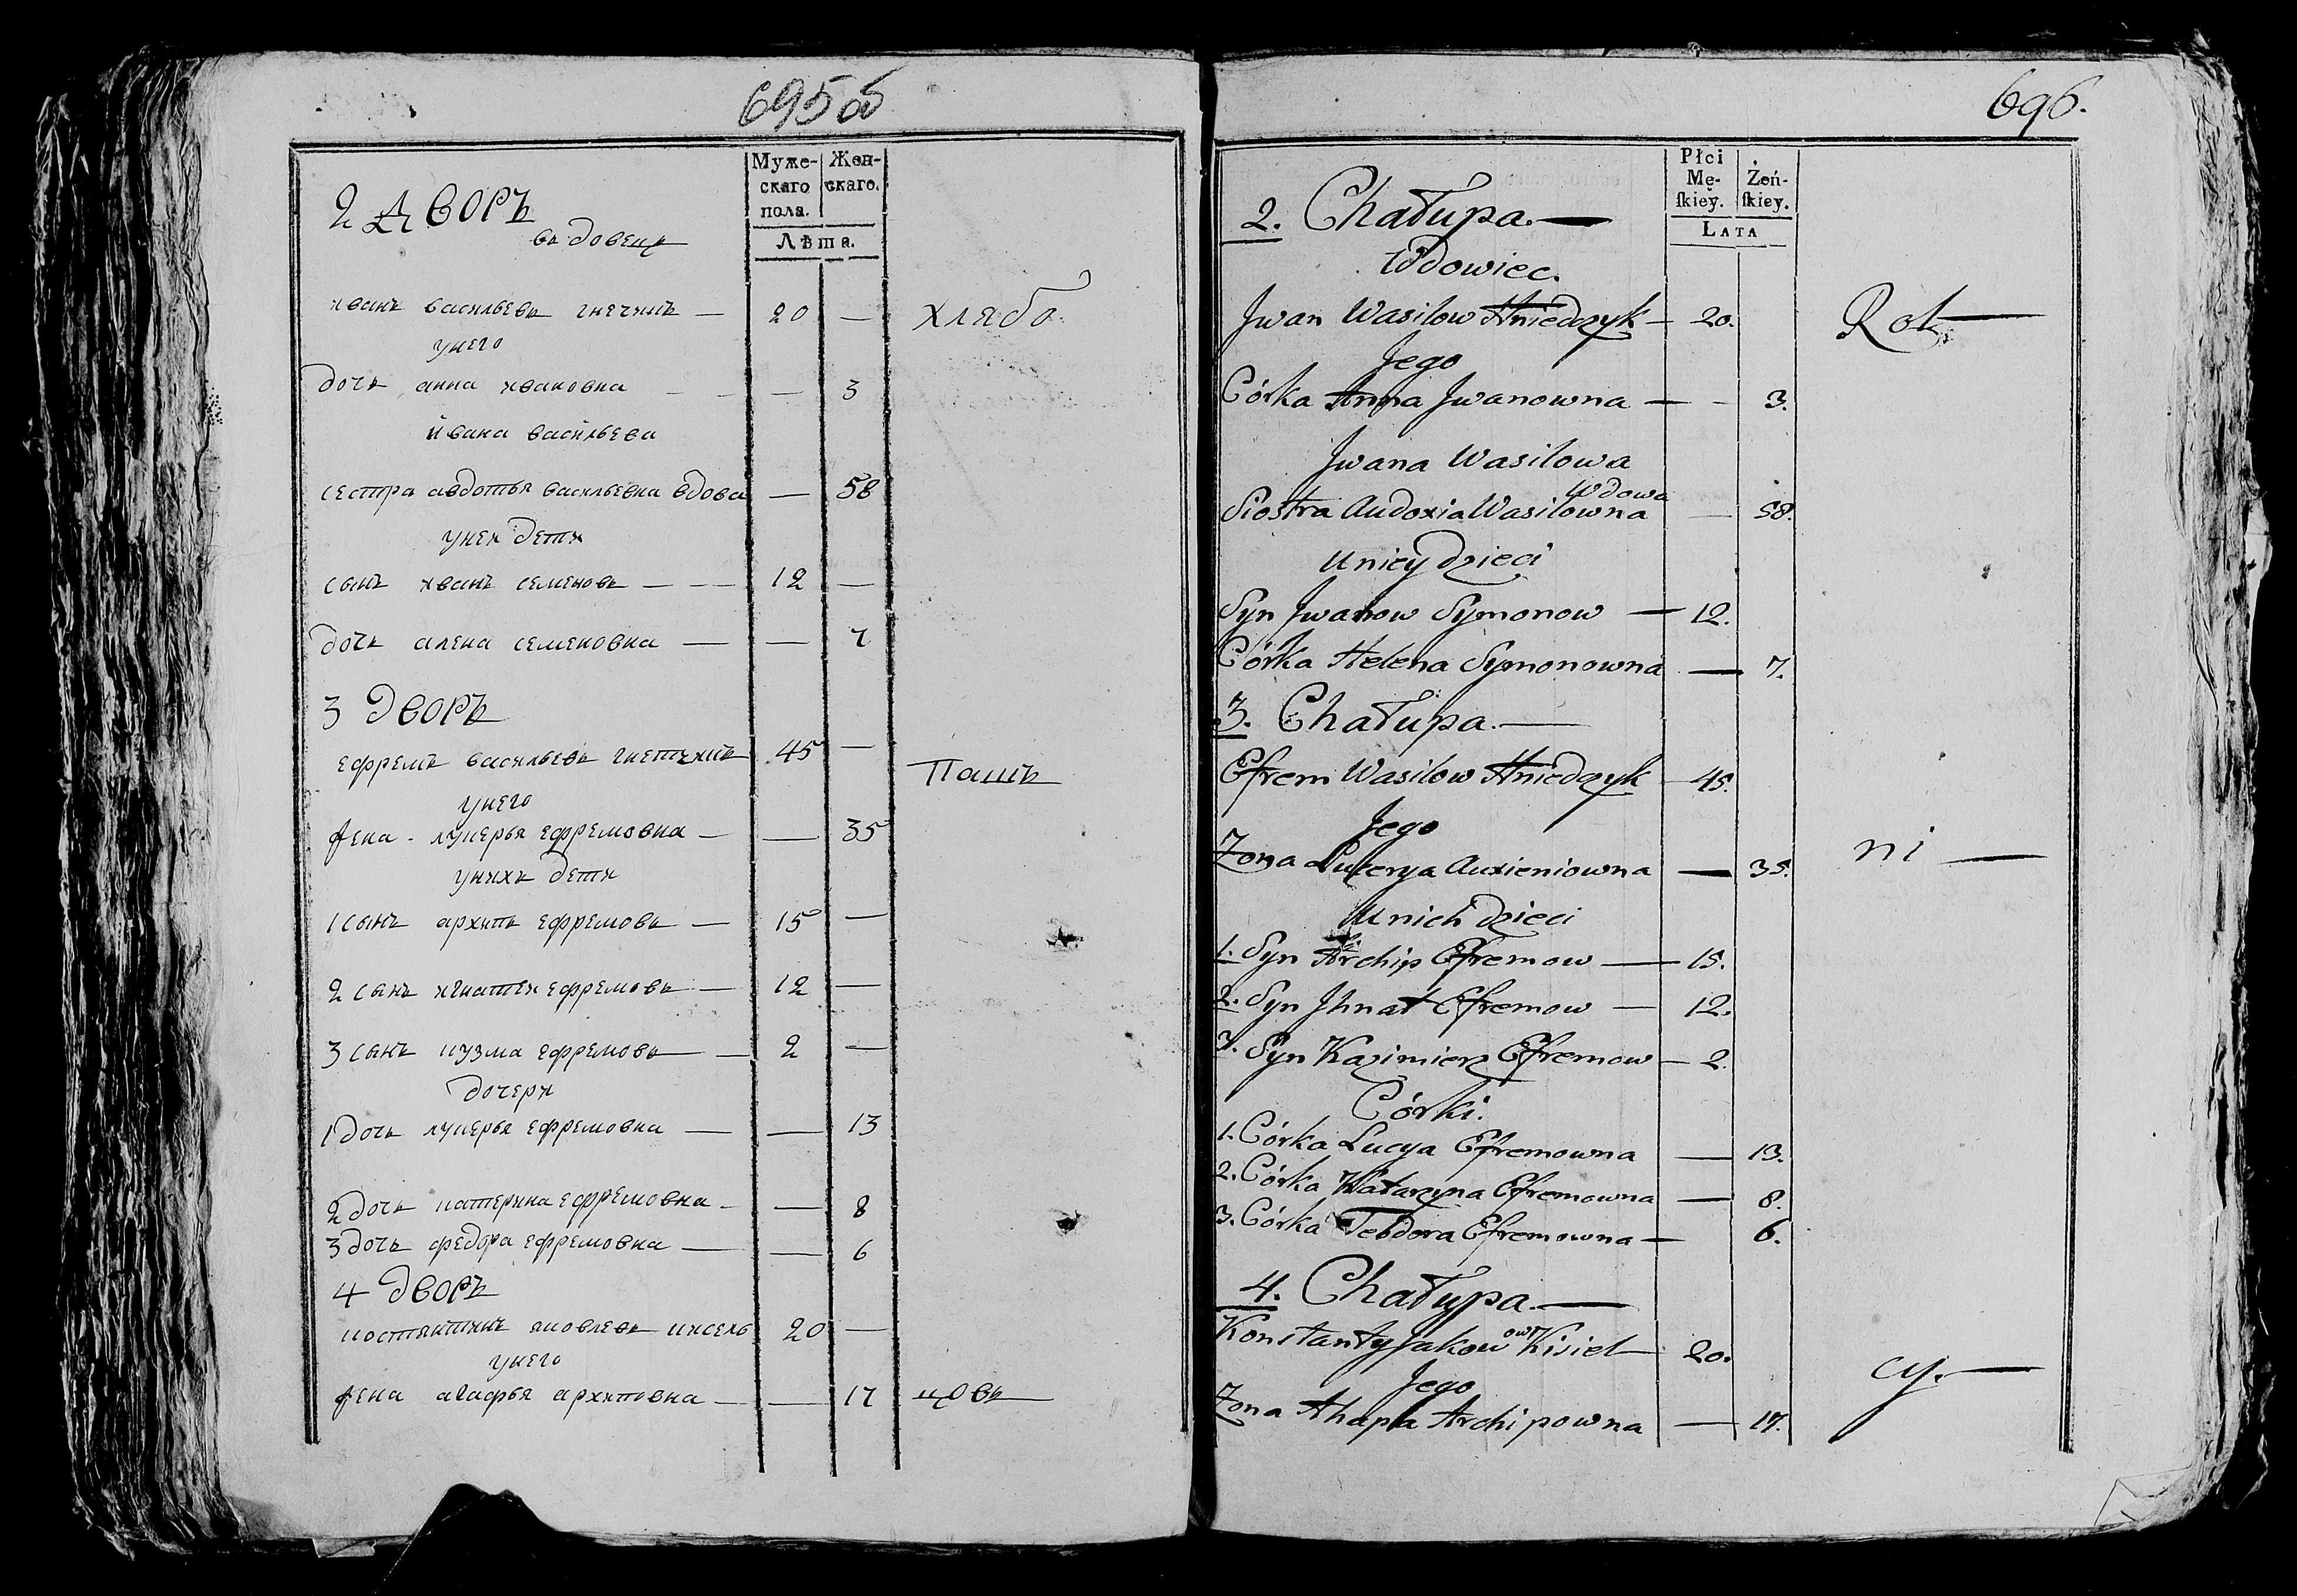 695 об
Муже-
скаго
пола.
Жен-
скаго.
Лѣта.
2 дворъ
вдовецъ
иванъ васильевъ гнечикъ — 20 — хлебо
унего
дочь анна ивановна — — 3
ивана васильева
сестра авдотья васильевна вдова — 58
унея дети
сынъ иванъ семеновъ — 12 —
дочь алена семеновна — — 7
3 дворъ
ефремъ васильевъ гнетчикъ 45 —
Пашъ
унего
жена - лукерья ефремовна — — 35
унихъ дети
1 сынъ архипъ ефремовъ — 15 —
2 сынъ игнатеи ефремовъ — 12 —
3 сынъ кузма ефремовъ — 2 —
дочери
1 дочь лукерья ефремовна — — 13
2 дочь катерина ефремовна — — 8
3 дочь федора ефремовна — — 6
4 дворъ
костянтинъ яковлевъ кисель 20 —
унего
жена агафья архиповна — — 17 цовъ
696.
Płci
Mę-
skiey.
Żeń-
skiey.
LATA
2. Chałupa.—
Wdowiec.
Jwan Wasilow Hniedczyk — 20. Rol—
Jego
Córka Anna Jwanowna — - 3.
Jwana Wasilowa
Wdowa
Siostra Audoxia Wasilowna — 58.
Uniey dzieci
Syn Jwanow Symonow — 12.
Córka Helena Symonowna — 7.
3. Chałupa.—
Efrem Wasilow Hniedczyk — 45.
Jego
ni —
Żona Lukerya Auxieniowna — 35.
Unich dzieci
1. Syn Archip Efremow — 15.
2. Syn Jhnat Efremow — 12.
3. Syn Kazimierz Efremow — 2.
Córki.
1. Córka Lucya Efremowna — 13.
2. Córka Katarzyna Efremowna — 8.
3. Córka Teodora Efremowna — 6.
4. Chałupa.—
Konstanty Jakowow Kisiel — 20.
Jego
cy.—
Żona Ahapa Archipowna — 17.